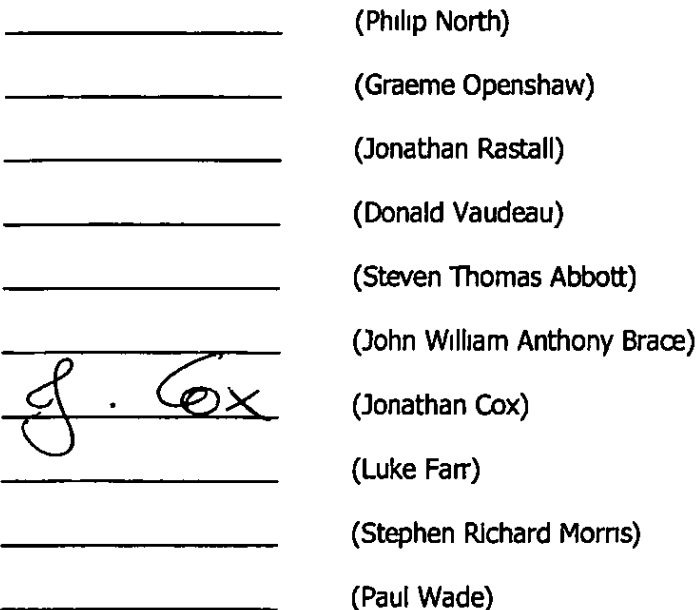 (Philip North)
(Graeme Openshaw)
(Jonathan Rastall)
(Donald Vaudeau)
(Steven Thomas Abbott)
(John William Anthony Brace)
J. Cox (Jonathan Cox)
(Luke Farr)
(Stephen Richard Morris)
(Paul Wade)